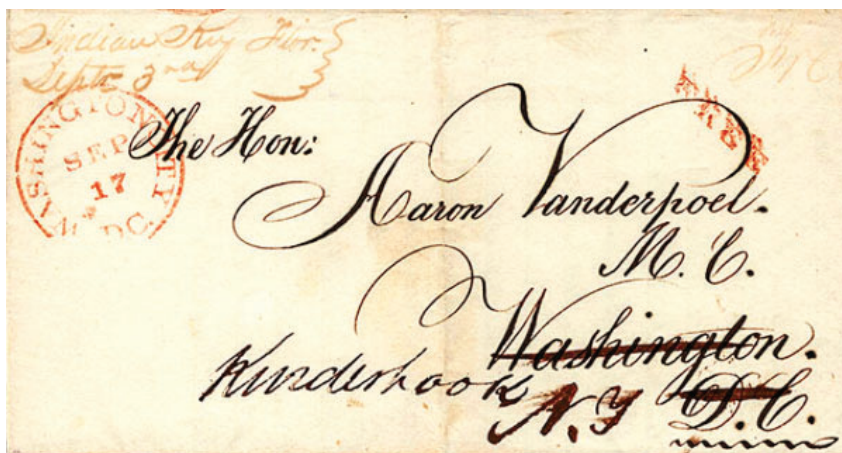 Indian Key Flor.
Septr 3rd
WASHINGTON CITY
SEP
17
D.C.
FREE
The Hon:
Aaron Vanderpoel.
M. C.
Washington.
Kinderhook
N.Y D.C.